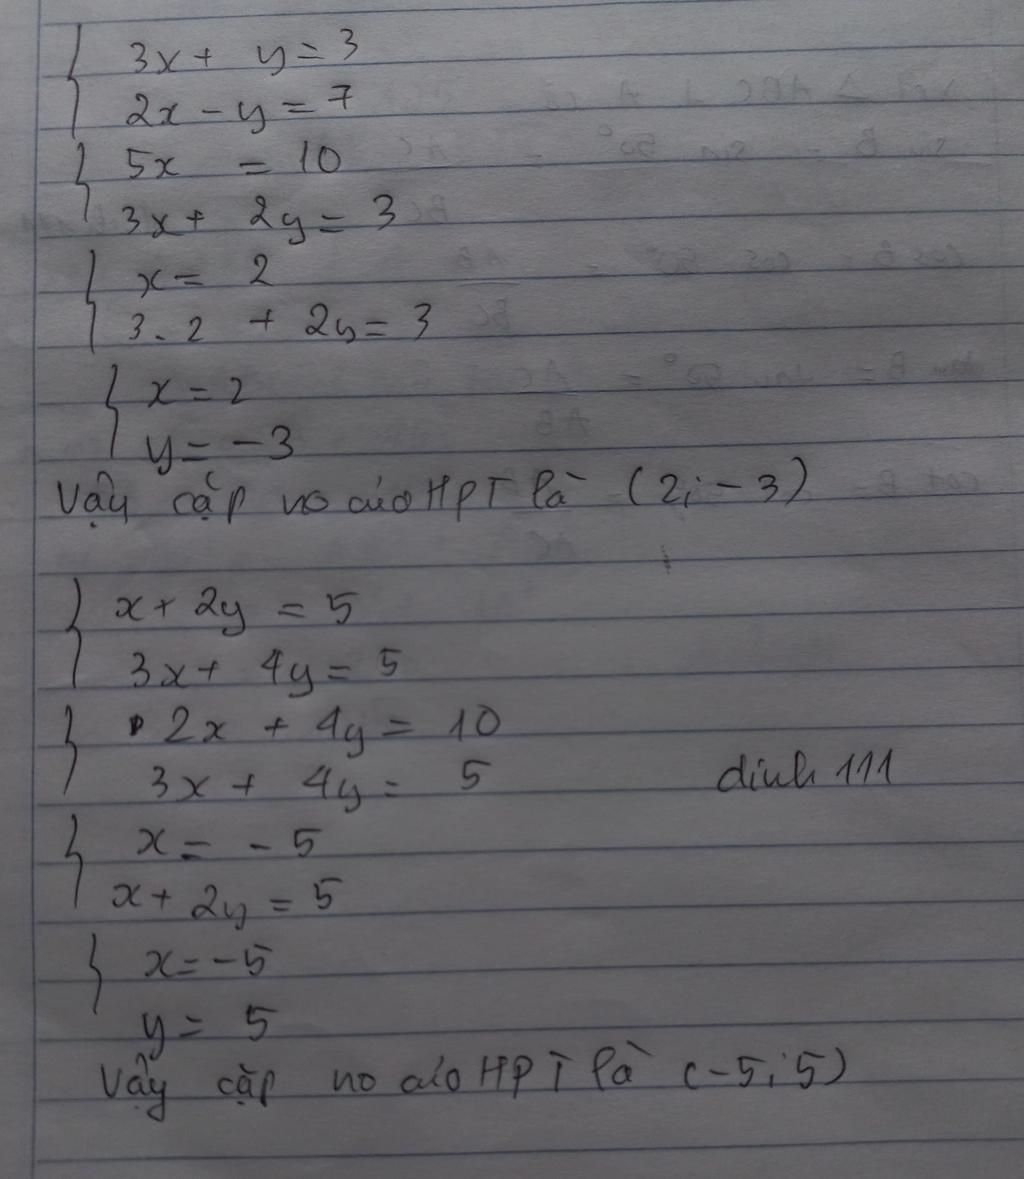 3x + y = 3
2x - y = 7
5x = 10
3x + 2y = 3
x = 2
3.2 + 2y = 3
x = 2
y = -3
Vậy cặp no của HPT là (2; -3)
x + 2y = 5
3x + 4y = 5
2x + 4y = 10
3x + 4y = 5
dinh 111
x = -5
x + 2y = 5
x = -5
y = 5
Vậy cặp no của HPT là (-5; 5)